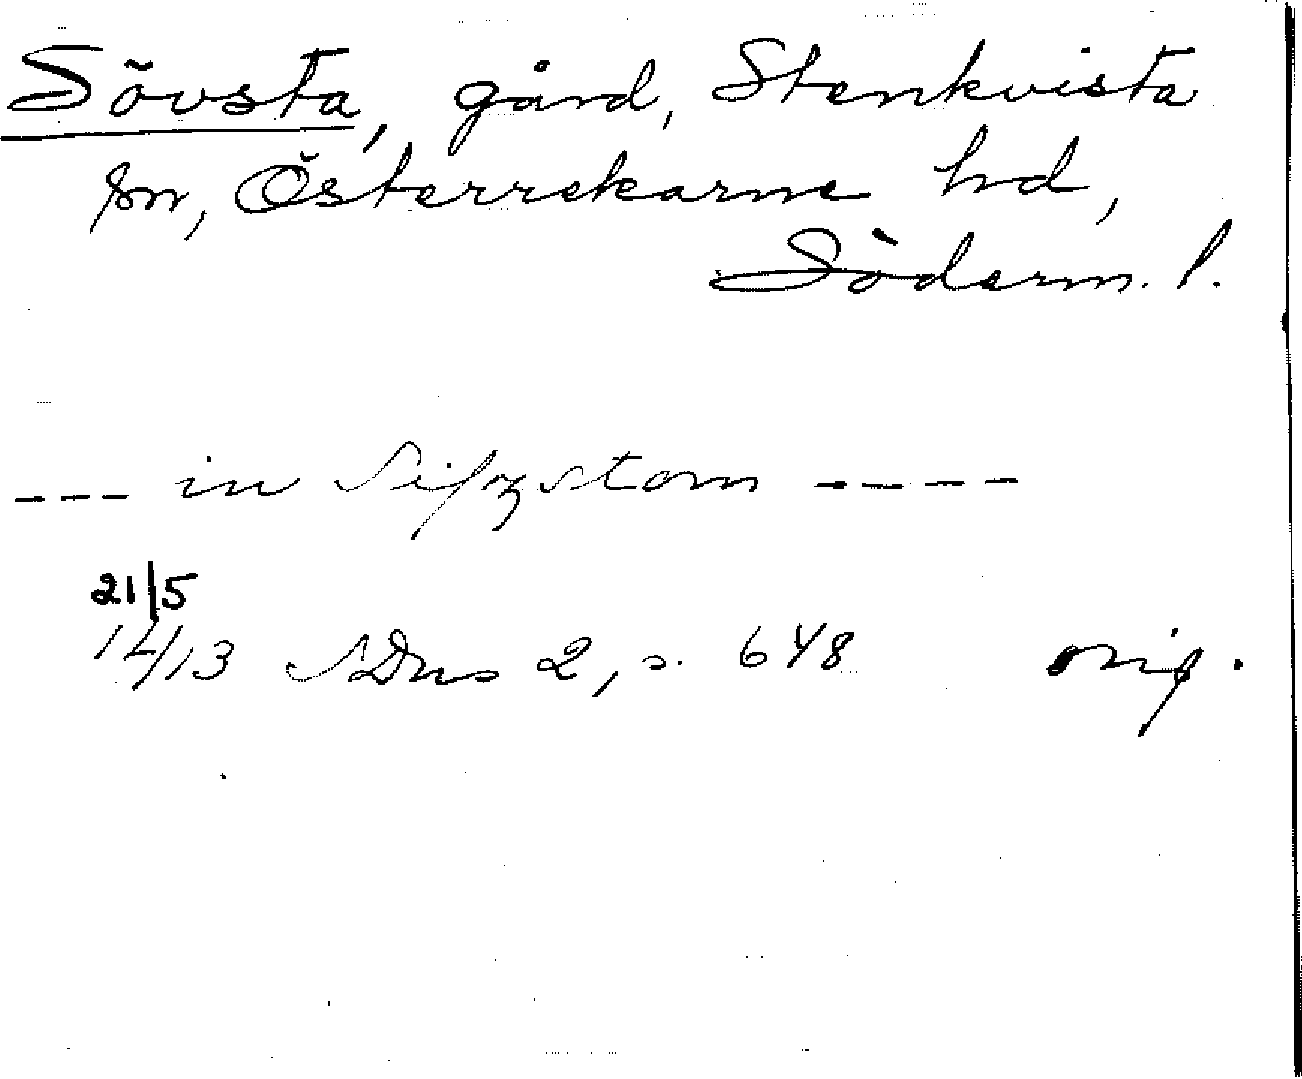 Sövsta, gård, Stenkvista
sn, Österrekarne hd,
Söderm. l.
--- in Sifzstom -----
21/5
1413 SDns 2, s. 648 orig.